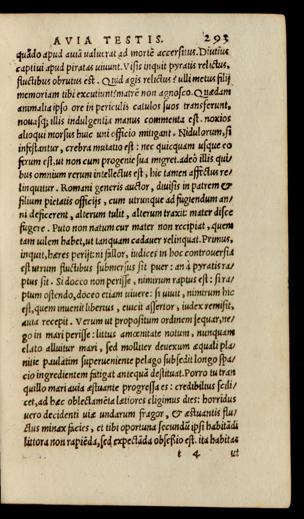 AVIA TESTIS. 293
quādo apud auiā valuerat ad mortē accersitus. Diutius
captiui apud piratas uiuunt. Visis inquit pyratis relictus,
fluctibus obrutus est. Quid agis relictus? ulli metus filij
memoriam tibi excutiunt? matrē non agnosco. Quædam
animalia ipso ore in periculis catulos suos transferunt,
nouasq; illis indulgentia manus commenta est. noxios
alioqui morsus huic uni officio mitigant. Nidulorum, si
infestantur, crebra mutatio est: nec quicquam usque eo
ferum est, ut non cum progenie sua migret. adeò illis qui⸗
bus omnium rerum intellectus est, hic tamen affectus re⸗
linquitur. Romani generis auctor, diuisis in patrem &
filium pietatis officijs, cum utrunque ad fugiendum an⸗
ni deficerent, alterum tulit, alterum traxit: mater disce
fugere. Puto non natum cur mater non recipiat, quem
tam uilem habet, ut tanquam cadauer relinquat. Primus,
inquit, hæres perijt: ni fallor, iudices in hoc controuersia
est utrum fluctibus submersus sit puer: an à pyratis ra⸗
ptus sit. Si docco non perisse, nimirum raptus est: si ra⸗
ptum ostendo, doceo etiam uiuere: si uiuit, nimirum hic
est, quem inuenit libertus, euicit assertor, iudex remisit,
auia recepit. Verum ut propositum ordinem sequar, ne⸗
go in mari perisse: littus amœnitate notum, nunquam
elato alluitur mari, sed molliter deuexum æquali pla⸗
nitie paulatim superueniente pelago subsedit longo spa⸗
cio ingredientem fatigat antequā destituat. Porro tu tran
quillo mari auia æstuante progressa es: credibilius scili⸗
cet, ad hæc oblectamēta lætiores eligimus dies: horridus
uero decidenti uiæ undarum fragor, & æstuantis flu⸗
ctus minax facies, et tibi oportuna secundū ipsi habitādi
littora non rapiēda, sed expectāda obsessio est. ita habitas
t 4 ut